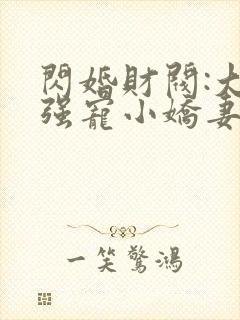 閃婚財閥:大
强寵小嬌妻
一笑驚鴻